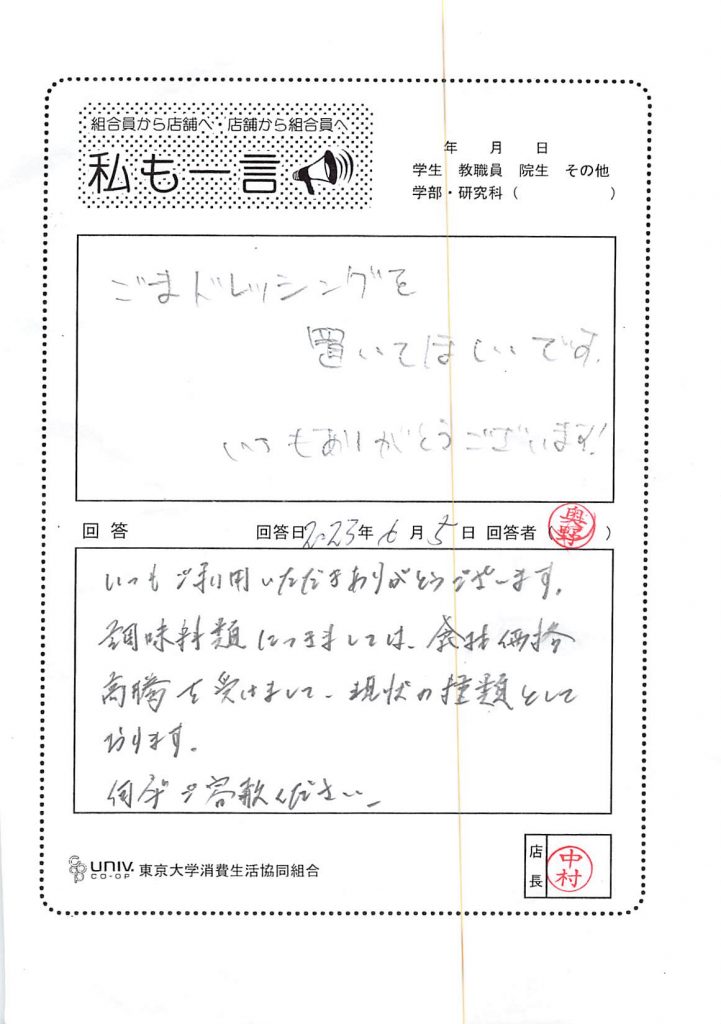 組合員から店舗へ・店舗から組合員へ
私も一言
年 月 日
学生 教職員 院生 その他
学部・研究科 ( )
ごまドレッシングを
置いてほしいです。
いつもありがとうございます!
回答 回答日 2023年 6月 5日 回答者 (奥野)
いつもご利用いただきありがとうございます。
調味料類につきましては、食材価格
高騰を受けまして、現状の種類として
おります。
何卒ご容赦ください。
UNIV. CO-OP 東京大学消費生活協同組合
店長 中村